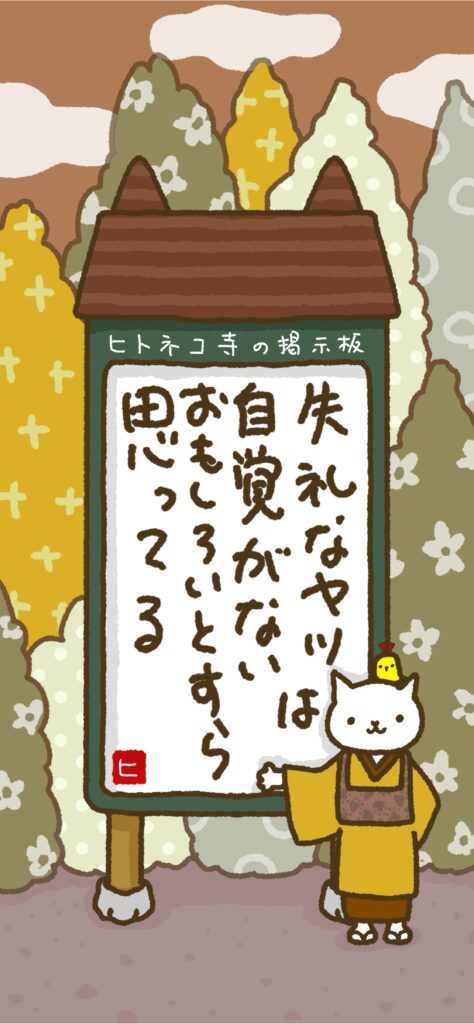 ヒトネコ寺の掲示板
失礼なヤツは
自覚がない
おもしろいとすら
思ってる
ヒ